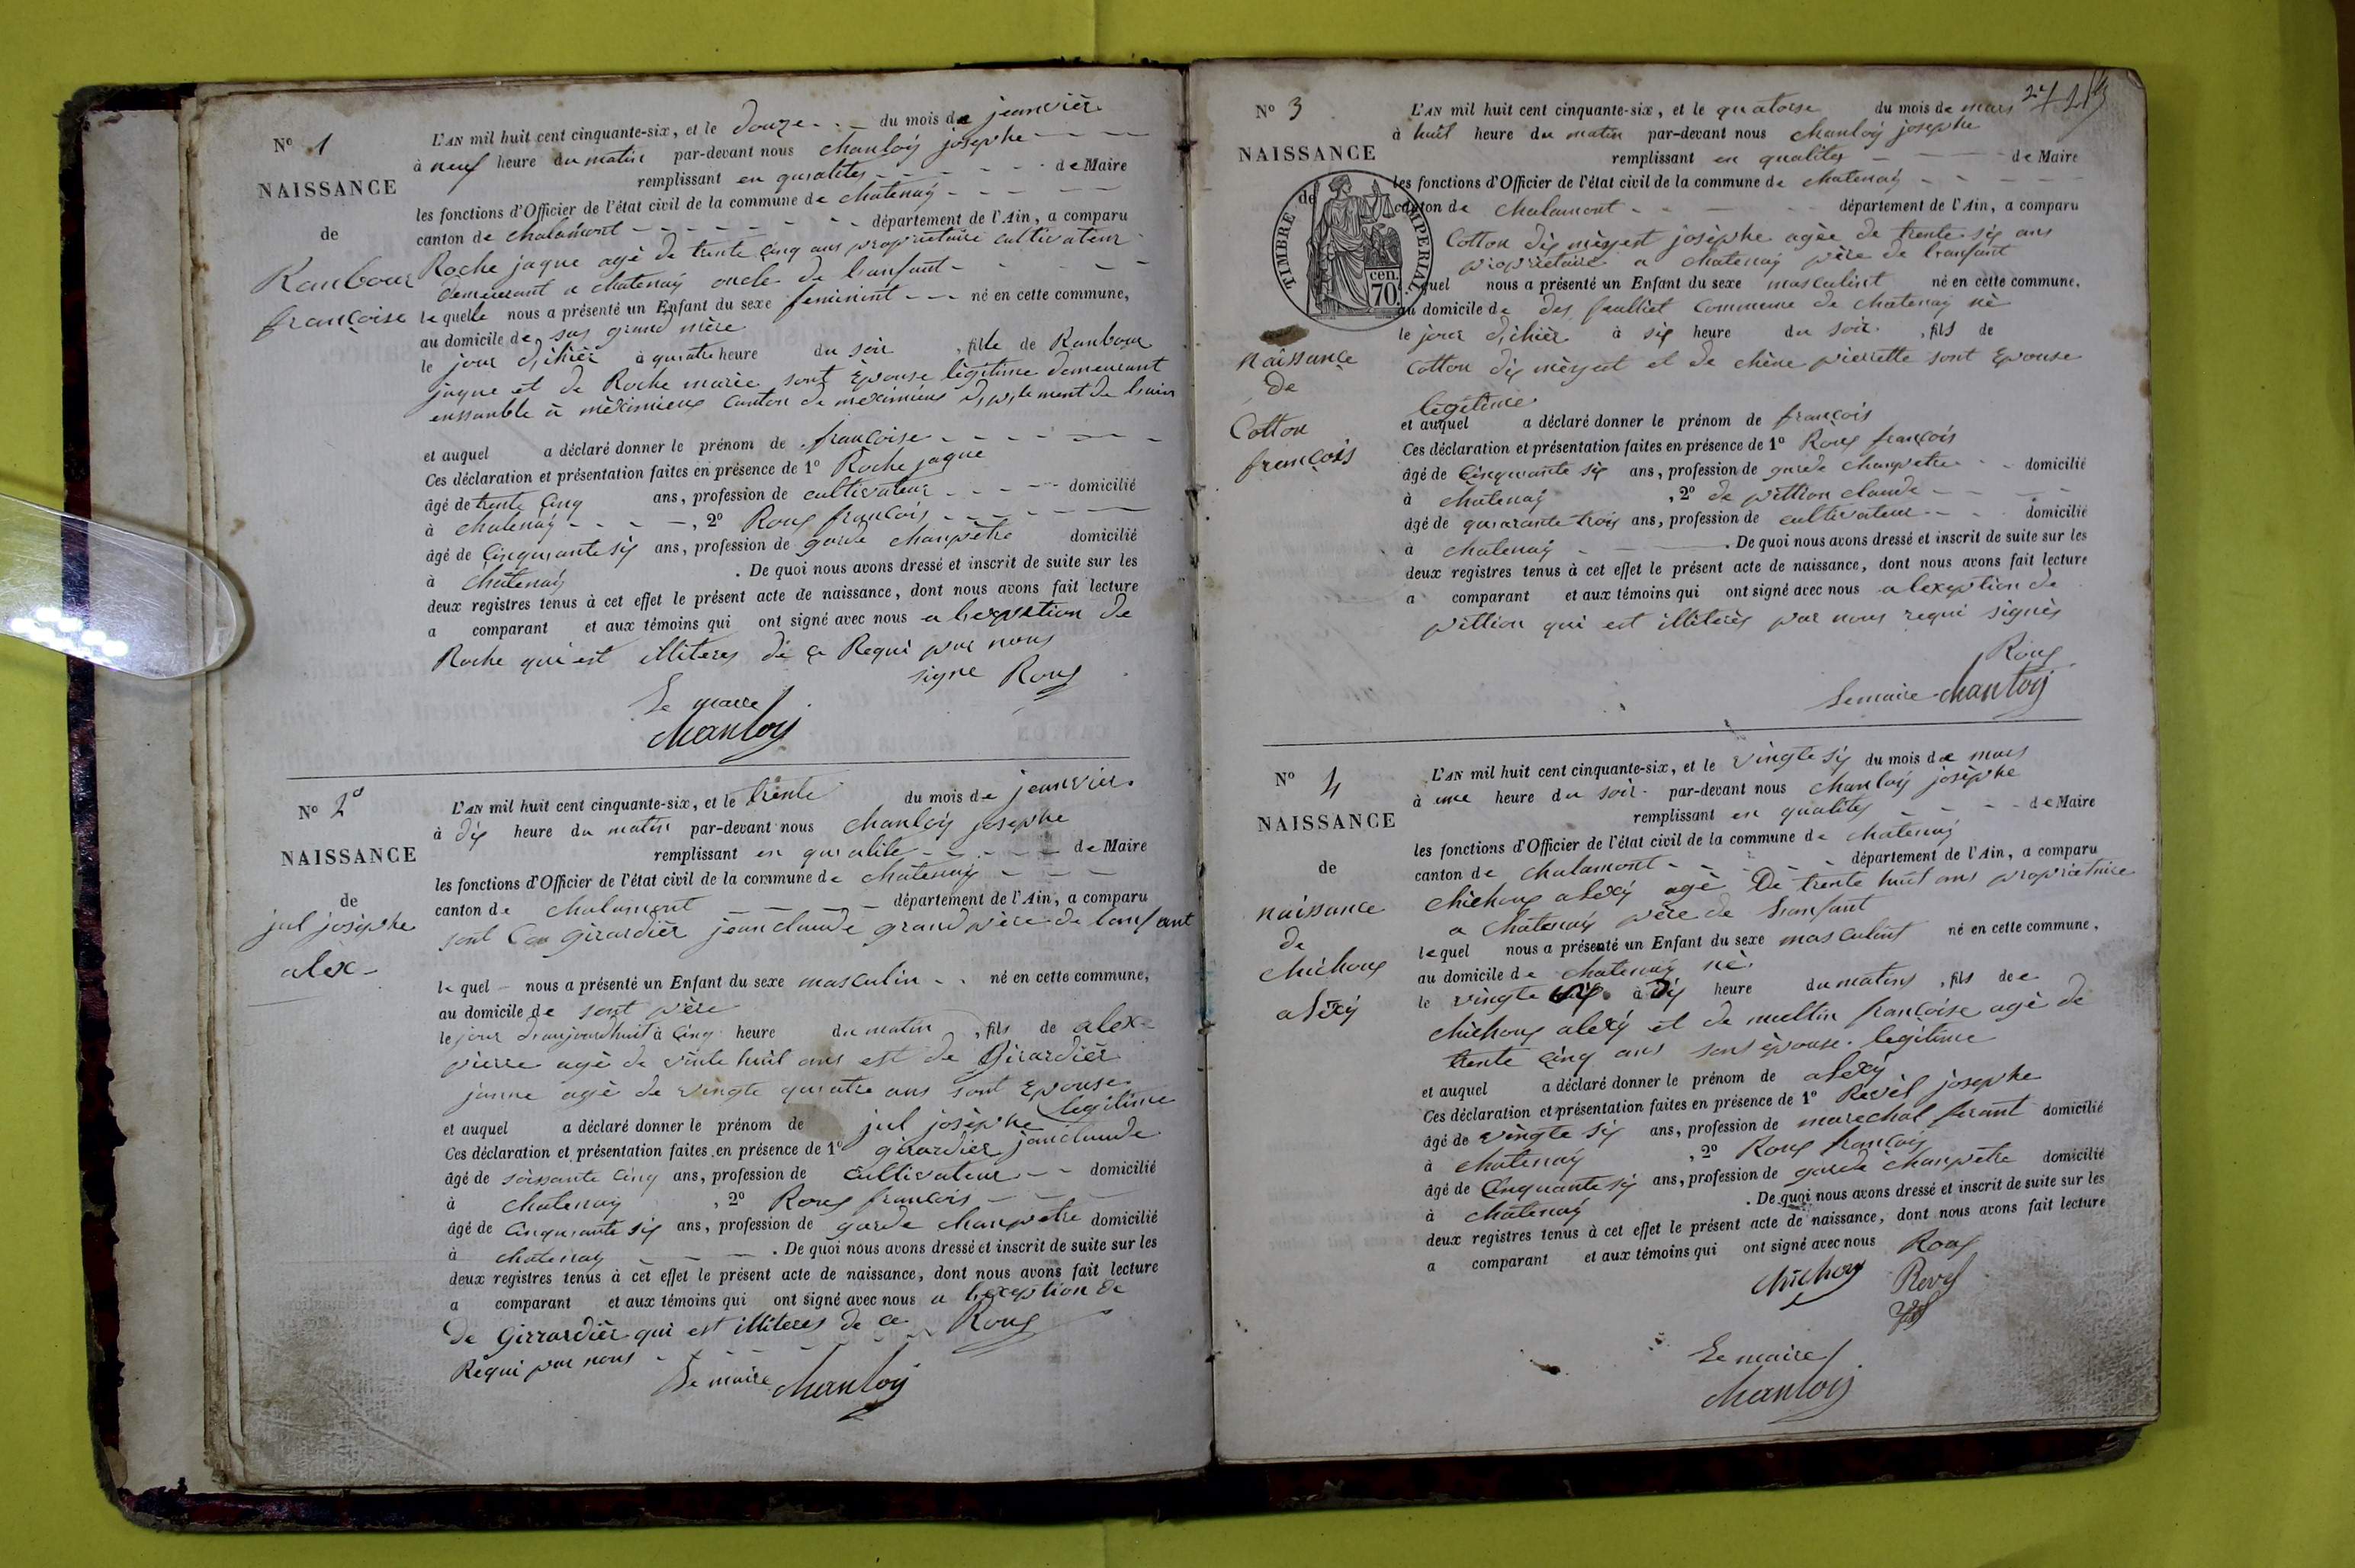 N° 1
NAISSANCE
de
Ranboux
françoise
L'AN mil huit cent cinquante-six, et le douze du mois de jeanvièr
à neuf heure du matin par-devant nous chanloÿ josephe
remplissant en qualites de Maire
les fonctions d'Officier de l'état civil de la commune de chatenaÿ
canton de chalamont département de l'Ain, a comparu
Roche jaque agé de trente çinq ans propriètaire cultivateur
demeurant a chatenaÿ oncle de lanfant
lequelle nous a présenté un Enfant du sexe feminint né en cette commune,
au domicile de sas grand mère
le jour dihièr à quatre heure du soir , fille de Ranboux
jaque et de Roche marie sont Epouse lègitime demeurant
enssanble à mèximieux canton de meximieux dèpartement de lain
et auquel a déclaré donner le prénom de françoise
Ces déclaration et présentation faites en présence de 1° Roche jaque
âgé de trente çinq ans, profession de cultivateur domicilié
à chatenaÿ , 2° Roux françois
âgé de çinquante six ans, profession de garde chanpètre domicilié
à chatenaÿ . De quoi nous avons dressé et inscrit de suite sur les
deux registres tenus à cet effet le présent acte de naissance, dont nous avons fait lecture
a comparant et aux témoins qui ont signé avec nous a lexsption de
Roche qui est illiteres de ça Requi par nous
signe Roux
Le maire
chanloÿ
N° 2
NAISSANCE
de
jul josèphe
alex
L'AN mil huit cent cinquante-six, et le trente du mois de jeanvier
à dix heure du matin par-devant nous chanloÿ josephe
remplissant en qualite de Maire
les fonctions d'Officier de l'état civil de la commune de chatenaÿ
canton de chalamont département de l'Ain, a comparu
girardièr jean claude grand père de lanfant
lequel nous a présenté un Enfant du sexe masculin né en cette commune,
au domicile de sont père
le jour daujourdhuit à çinq heure du matin , fils de alex
pierre agé de vinte huit ans est de Girardièr
janne agé de vingte quatre ans sont Epouse
legitime
et auquel a déclaré donner le prénom de jul josèphe
Ces déclaration et présentation faites en présence de 1° girardièr janclaude
âgé de soissante çinq ans, profession de cultivateur domicilié
à chatenaÿ , 2° Roux françois
âgé de çinquante six ans, profession de garde chanpetre domicilié
à chatenaÿ . De quoi nous avons dressé et inscrit de suite sur les
deux registres tenus à cet effet le présent acte de naissance, dont nous avons fait lecture
a comparant et aux témoins qui ont signé avec nous a lexeption de
de Girrardièr qui est illiteres de ce Roux
Requi par nous
Le maire chanloÿ
N° 3
NAISSANCE
de
TIMBRE IMPERIAL
cen.
70.
naissance
de
Cotton
françois
L'AN mil huit cent cinquante-six, et le quatorse du mois de mars
à huit heure du matin par-devant nous chanloÿ josephe
remplissant en qualites de Maire
les fonctions d'Officier de l'état civil de la commune de chatenaÿ
canton de chalamont département de l'Ain, a comparu
Cotton dix mèsjest josèphe agèe de trente six ans
propriètaire a chatenaÿ père de lanfant
lequel nous a présenté un Enfant du sexe masculint né en cette commune,
au domicile de des commune de chatenaÿ nè
le jour dihièr à six heure du soir , fils de
Cotton dix et de chène pierrette sont Epouse
legitime
et auquel a déclaré donner le prénom de françois
Ces déclaration et présentation faites en présence de 1° Roux françois
âgé de çinquante six ans, profession de garde chanpetre domicilié
à chatenaÿ , 2° de pittion claude
âgé de quarante trois ans, profession de cultivateur domicilié
à chatenaÿ . De quoi nous avons dressé et inscrit de suite sur les
deux registres tenus à cet effet le présent acte de naissance, dont nous avons fait lecture
a comparant et aux témoins qui ont signé avec nous a lexeption de
pittion qui est illiterès par nous requi signès
Roux
Le maire chanloÿ
N° 4
NAISSANCE
de
naissance
de
chichoux
alexÿ
L'AN mil huit cent cinquante-six, et le vingte six du mois de mars
à une heure du soir par-devant nous chanloÿ josèphe
remplissant en qualites de Maire
les fonctions d'Officier de l'état civil de la commune de chatenaÿ
canton de chalamont département de l'Ain, a comparu
chichoux alexÿ agè De trente huit ans propriètaire
a chatenaÿ père de lanfant
lequel nous a présenté un Enfant du sexe masculint né en cette commune,
au domicile de chatenaÿ nè
le vingte six à dix heure du matins , fils de
chichoux alexÿ et de françoise agè de
trente çinq ans sont èpouse legitime
et auquel a déclaré donner le prénom de alexÿ
Ces déclaration et présentation faites en présence de 1° Revèl josephe
âgé de vingte six ans, profession de marechal ferant domicilié
à chatenaÿ , 2° Roux françois
âgé de çinquante six ans, profession de garde chanpètre domicilié
à chatenaÿ . De quoi nous avons dressé et inscrit de suite sur les
deux registres tenus à cet effet le présent acte de naissance, dont nous avons fait lecture
a comparant et aux témoins qui ont signé avec nous Roux
chichoux Revel
Le maire
chanloÿ